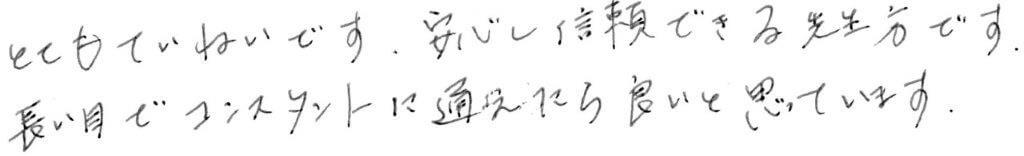 とてもていねいです.安心し信頼できる先生方です.
長い目でコンスタントに通えたら良いと思っています.